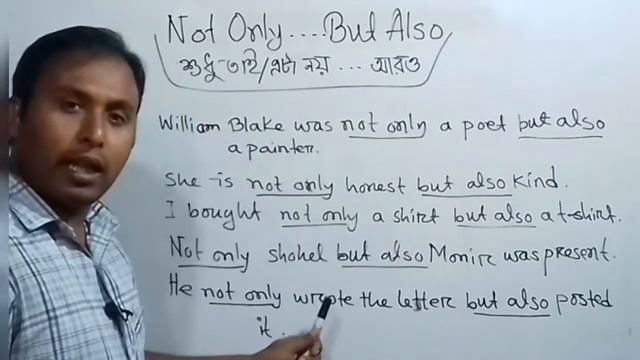 Not Only ....But Also
শুধু তাই/এটা নয় ... আরও
William Blake was not only a poet but also
a painter.
She is not only honest but also kind.
I bought not only a shirt but also a t-shirt.
Not only shohel but also Monir was present.
He not only wrote the letter but also posted
it.